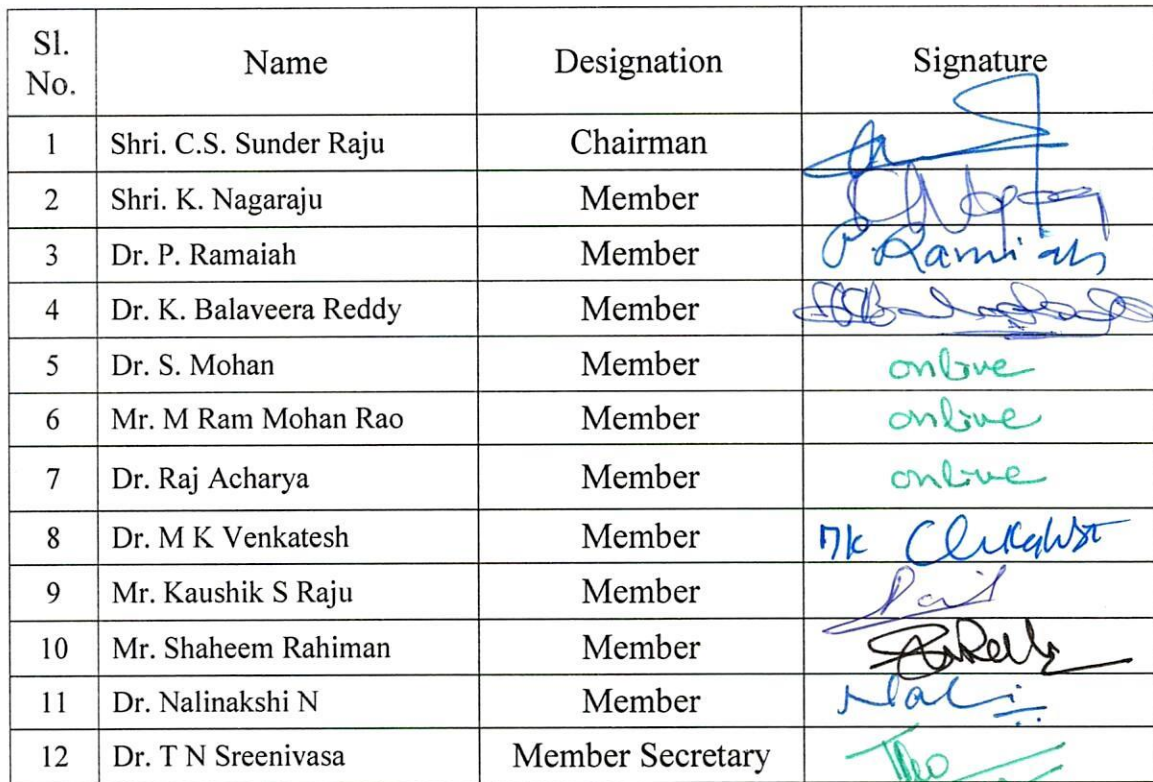 Sl. No. Name Designation Signature
1 Shri. C.S. Sunder Raju Chairman
2 Shri. K. Nagaraju Member
3 Dr. P. Ramaiah Member P. Ramaiah
4 Dr. K. Balaveera Reddy Member
5 Dr. S. Mohan Member online
6 Mr. M Ram Mohan Rao Member online
7 Dr. Raj Acharya Member online
8 Dr. M K Venkatesh Member MK
9 Mr. Kaushik S Raju Member
10 Mr. Shaheem Rahiman Member
11 Dr. Nalinakshi N Member
12 Dr. T N Sreenivasa Member Secretary